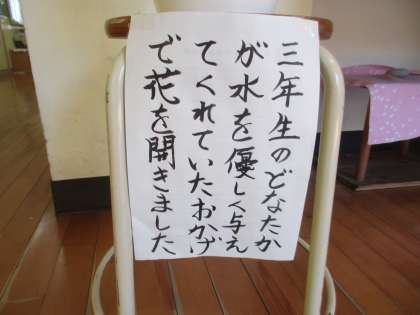 三年生のどなたか
が水を優しく与え
てくれていたおかげ
で花を開きました